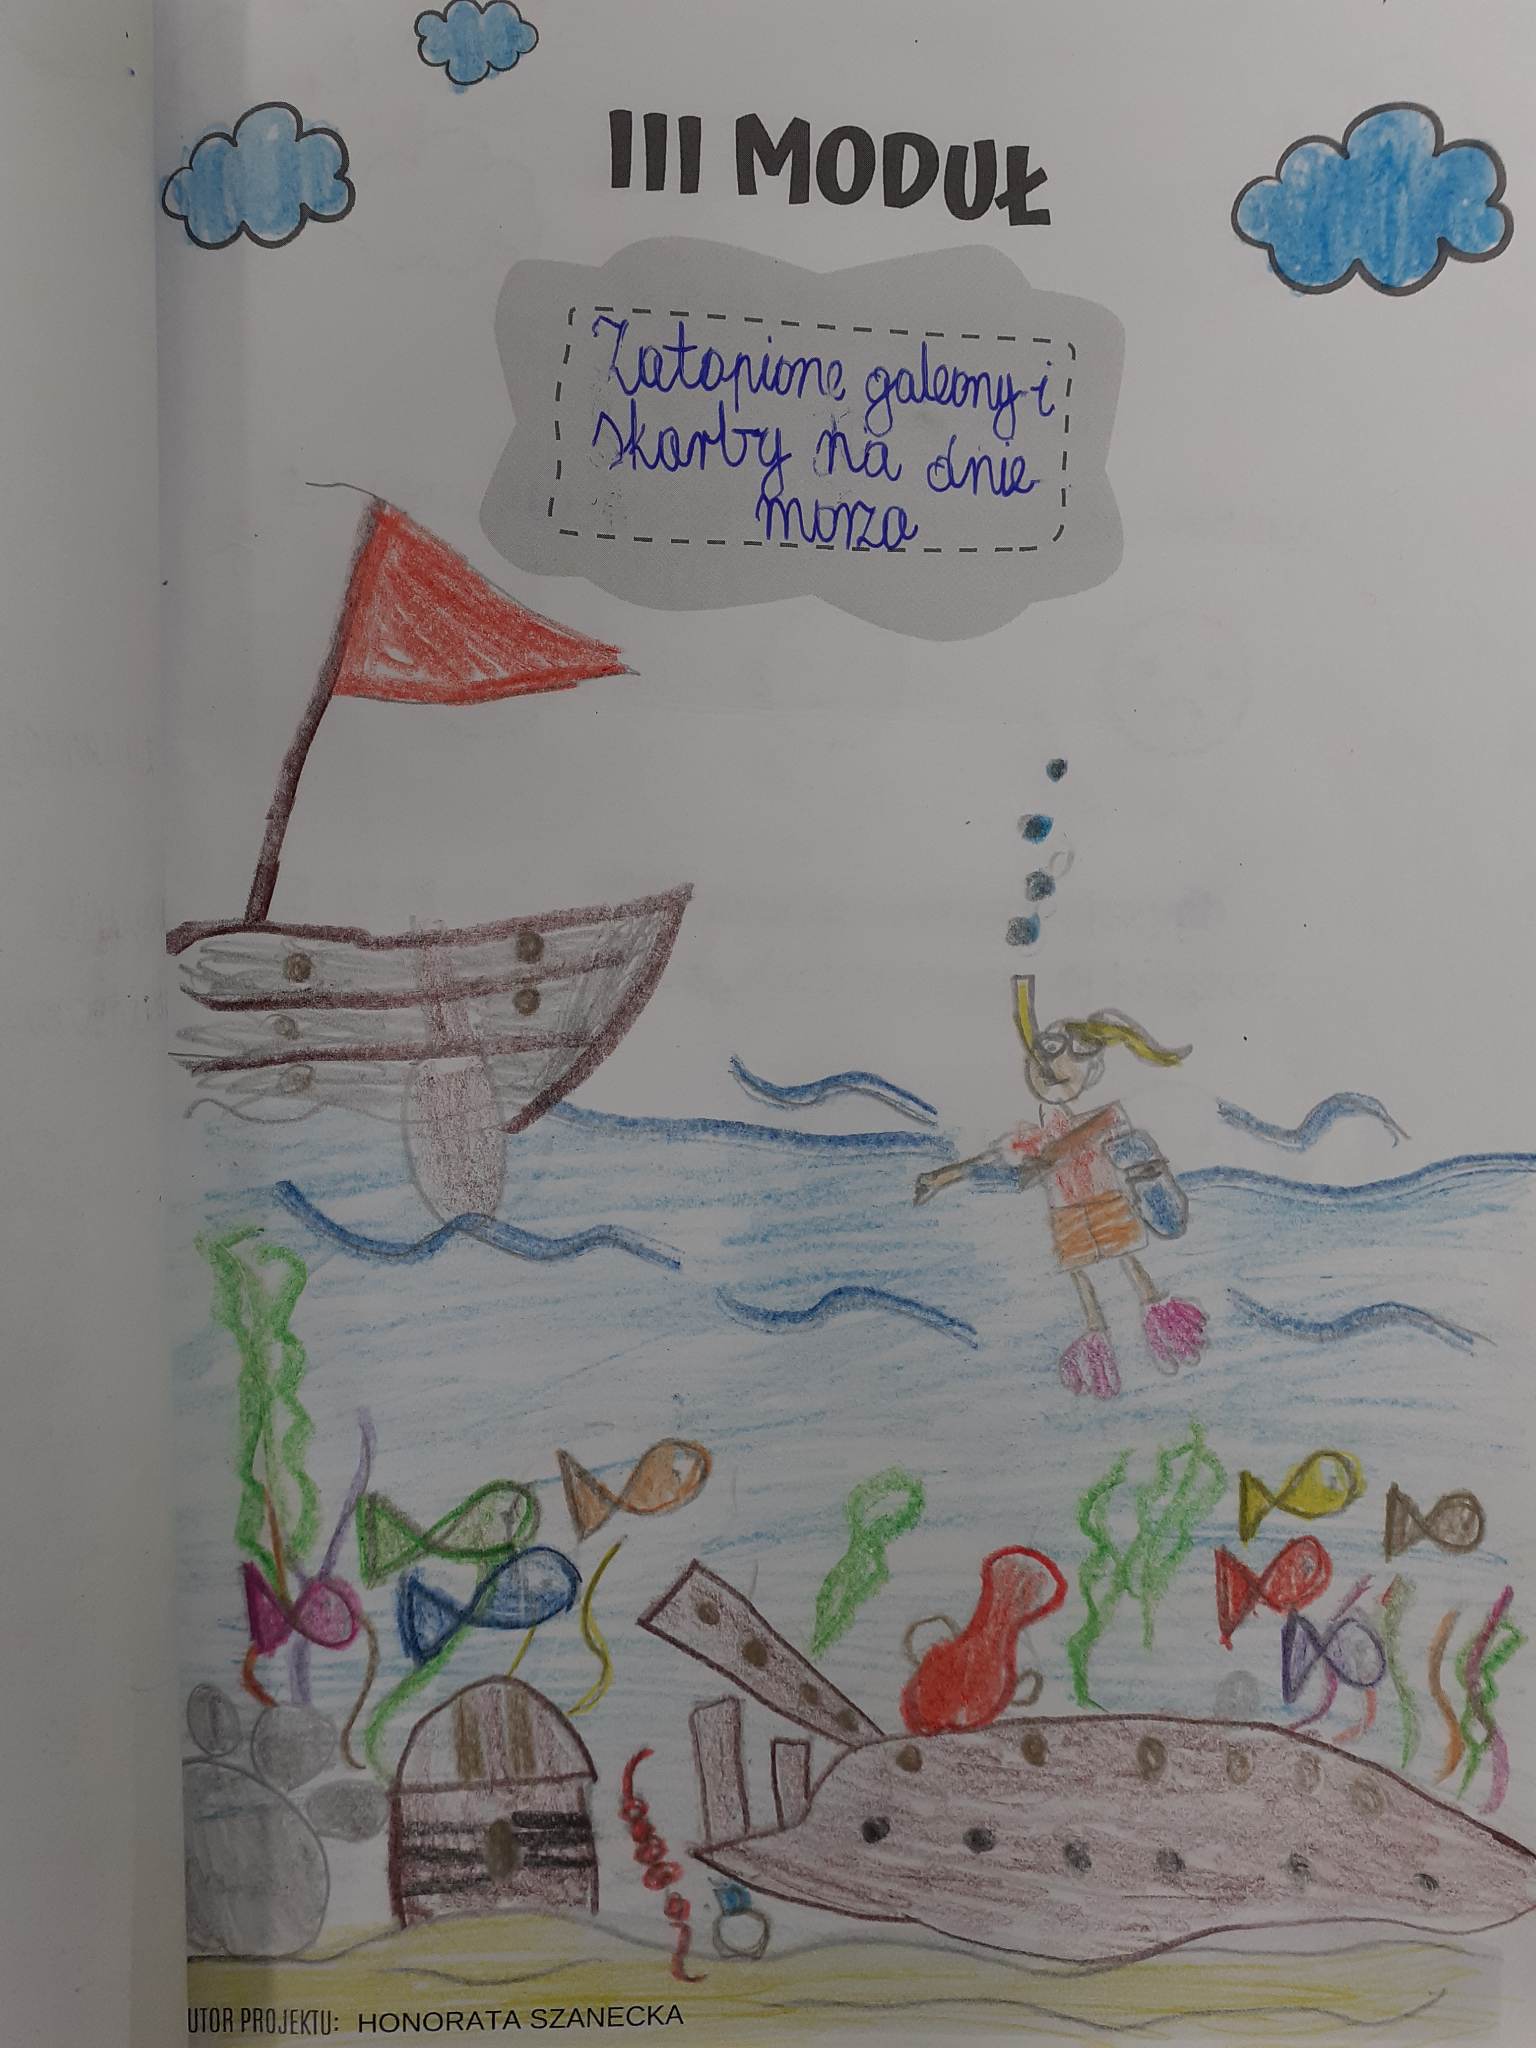 III MODUŁ
Zatopione galeony i
skarby na dnie
morza
UTOR PROJEKTU: HONORATA SZANECKA